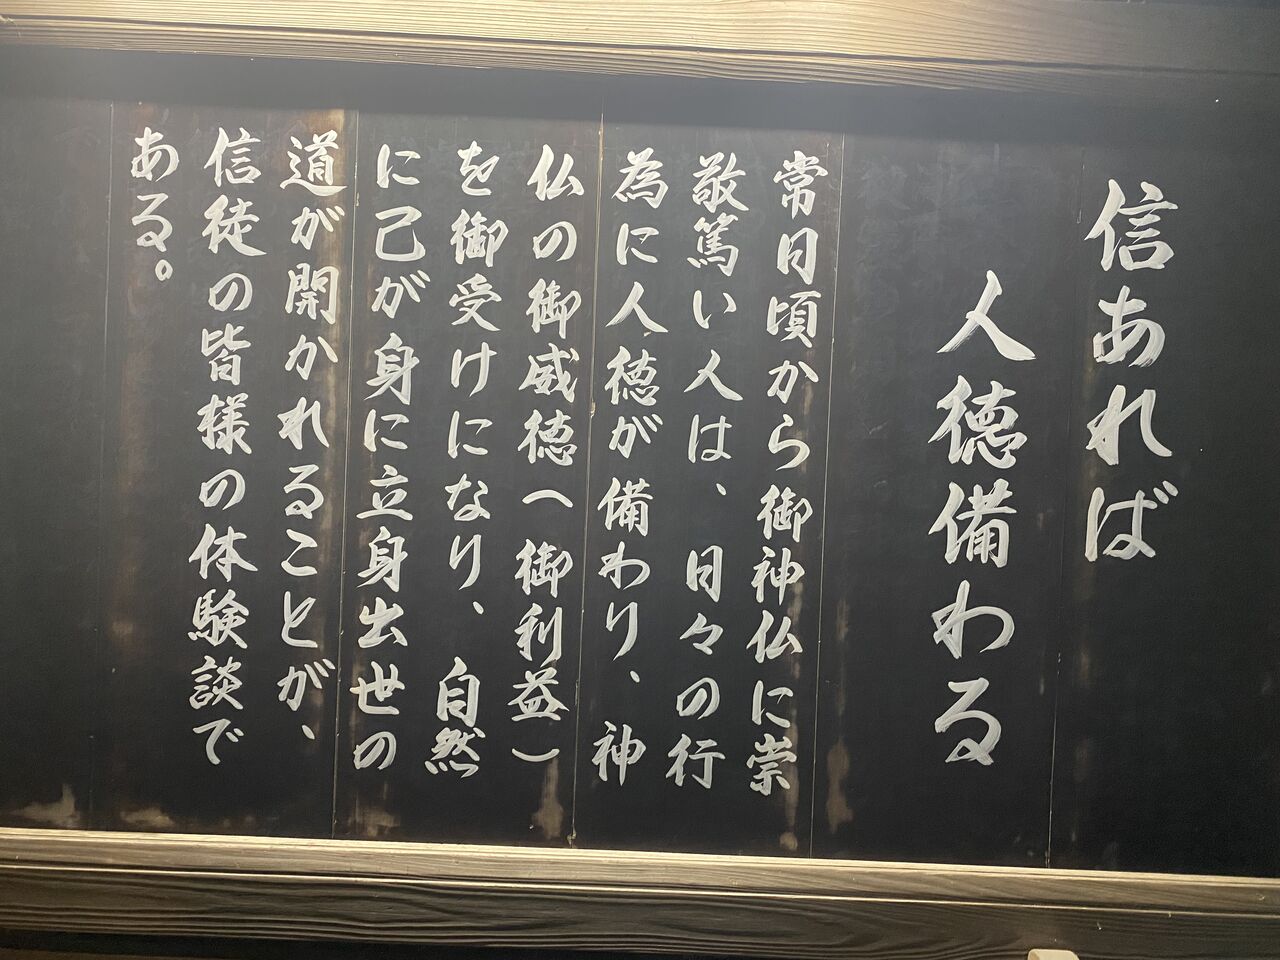 信あれば
人徳備わる
常日頃から御神仏に崇
敬篤い人は、日々の行
為に人徳が備わり、神
仏の御威徳(御利益)
を御受けになり、自然
に己が身に立身出世の
道が開かれることが、
信徒の皆様の体験談で
ある。